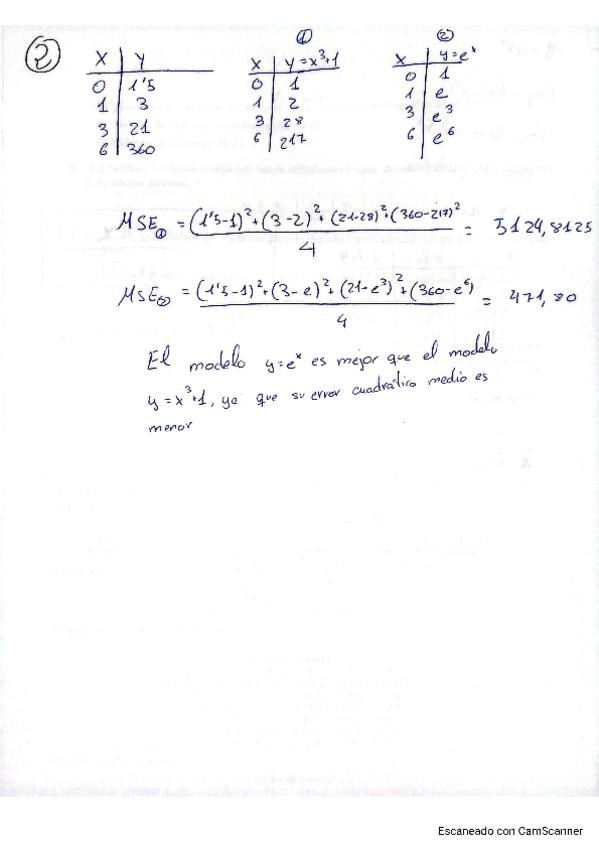 2
① ②
X Y X Y=x³+1 X y=eˣ
0 1'5 0 1 0 1
1 3 1 2 1 e
3 21 3 28 3 e³
6 360 6 217 6 e⁶
MSE① = (1'5-1)²+(3-2)²+(21-28)²+(360-217)² / 4 = 5124,8125
MSE② = (1'5-1)²+(3-e)²+(21-e³)²+(360-e⁶) / 4 = 471,80
El modelo y=eˣ es mejor que el modelo
y=x³+1, ya que su error cuadrático medio es
menor
Escaneado con CamScanner